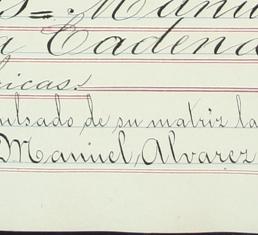 s= Manu
a Cadena
ricas.
ulsado de su matriz la
Manuel Alvarez